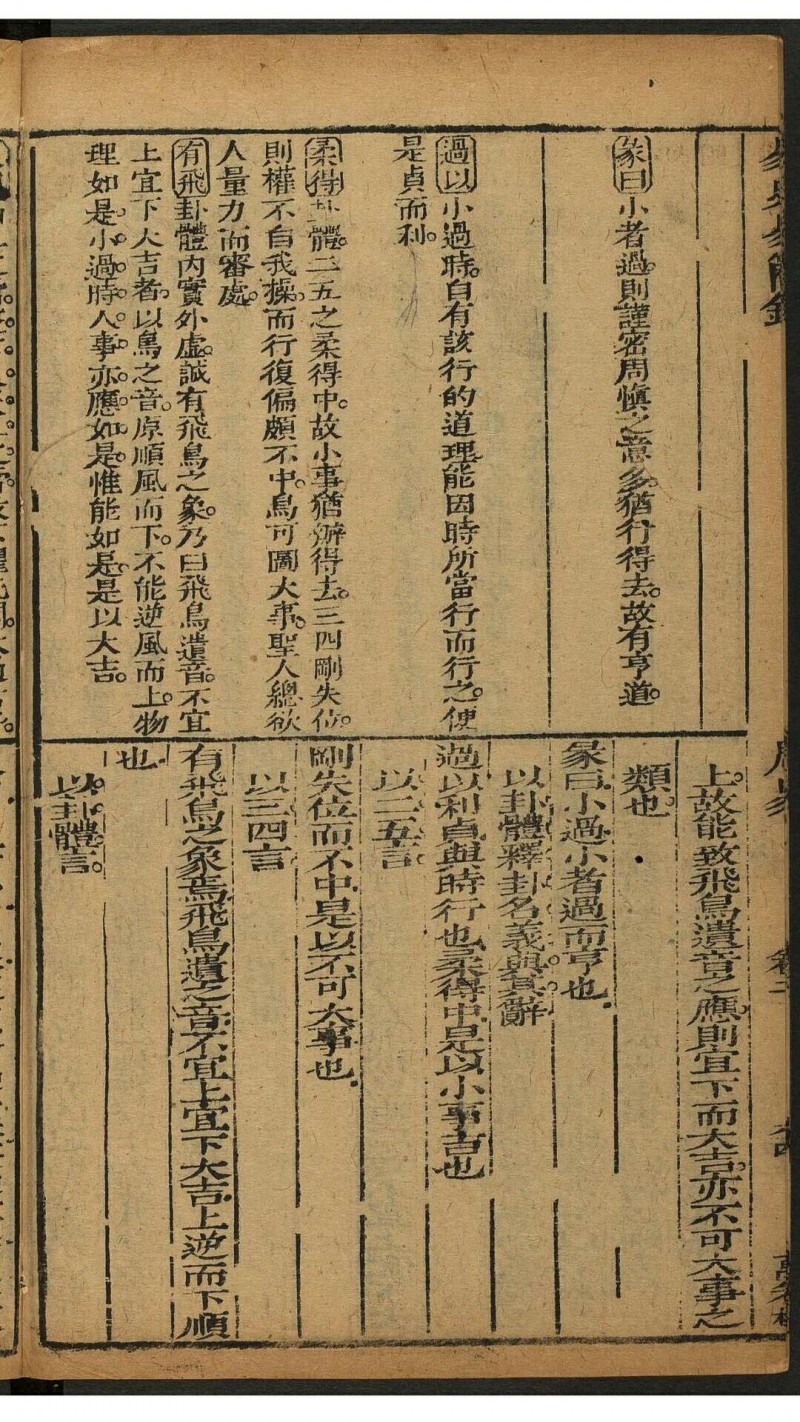 彖曰小者過則謹密周慎之意多猶行得去故有亨道
過以小過時自有該行的道理能因時所當行而行之便
是貞而利
柔得卦體二五之柔得中故小事猶辦得去三四剛失位
則權不自我操而行復偏頗不中烏可圖大事聖人總欲
人量力而審處
有飛卦體內實外虛誠有飛鳥之象乃曰飛鳥遺音不宜
上宜下大吉者以鳥之音原順風而下不能逆風而上物
理如是小過時人事亦應如是惟能如是是以大吉
上故能致飛鳥遺音之應則宜下而大吉亦不可大事之
類也
彖曰小過小者過而亨也
以卦體釋卦名義與其辭
過以利貞與時行也柔得中是以小事吉也
以二五言
剛失位而不中是以不可大事也
以三四言
有飛鳥之象焉飛鳥遺之音不宜上宜下大吉上逆而下順
也
以卦體言
周易
卷二